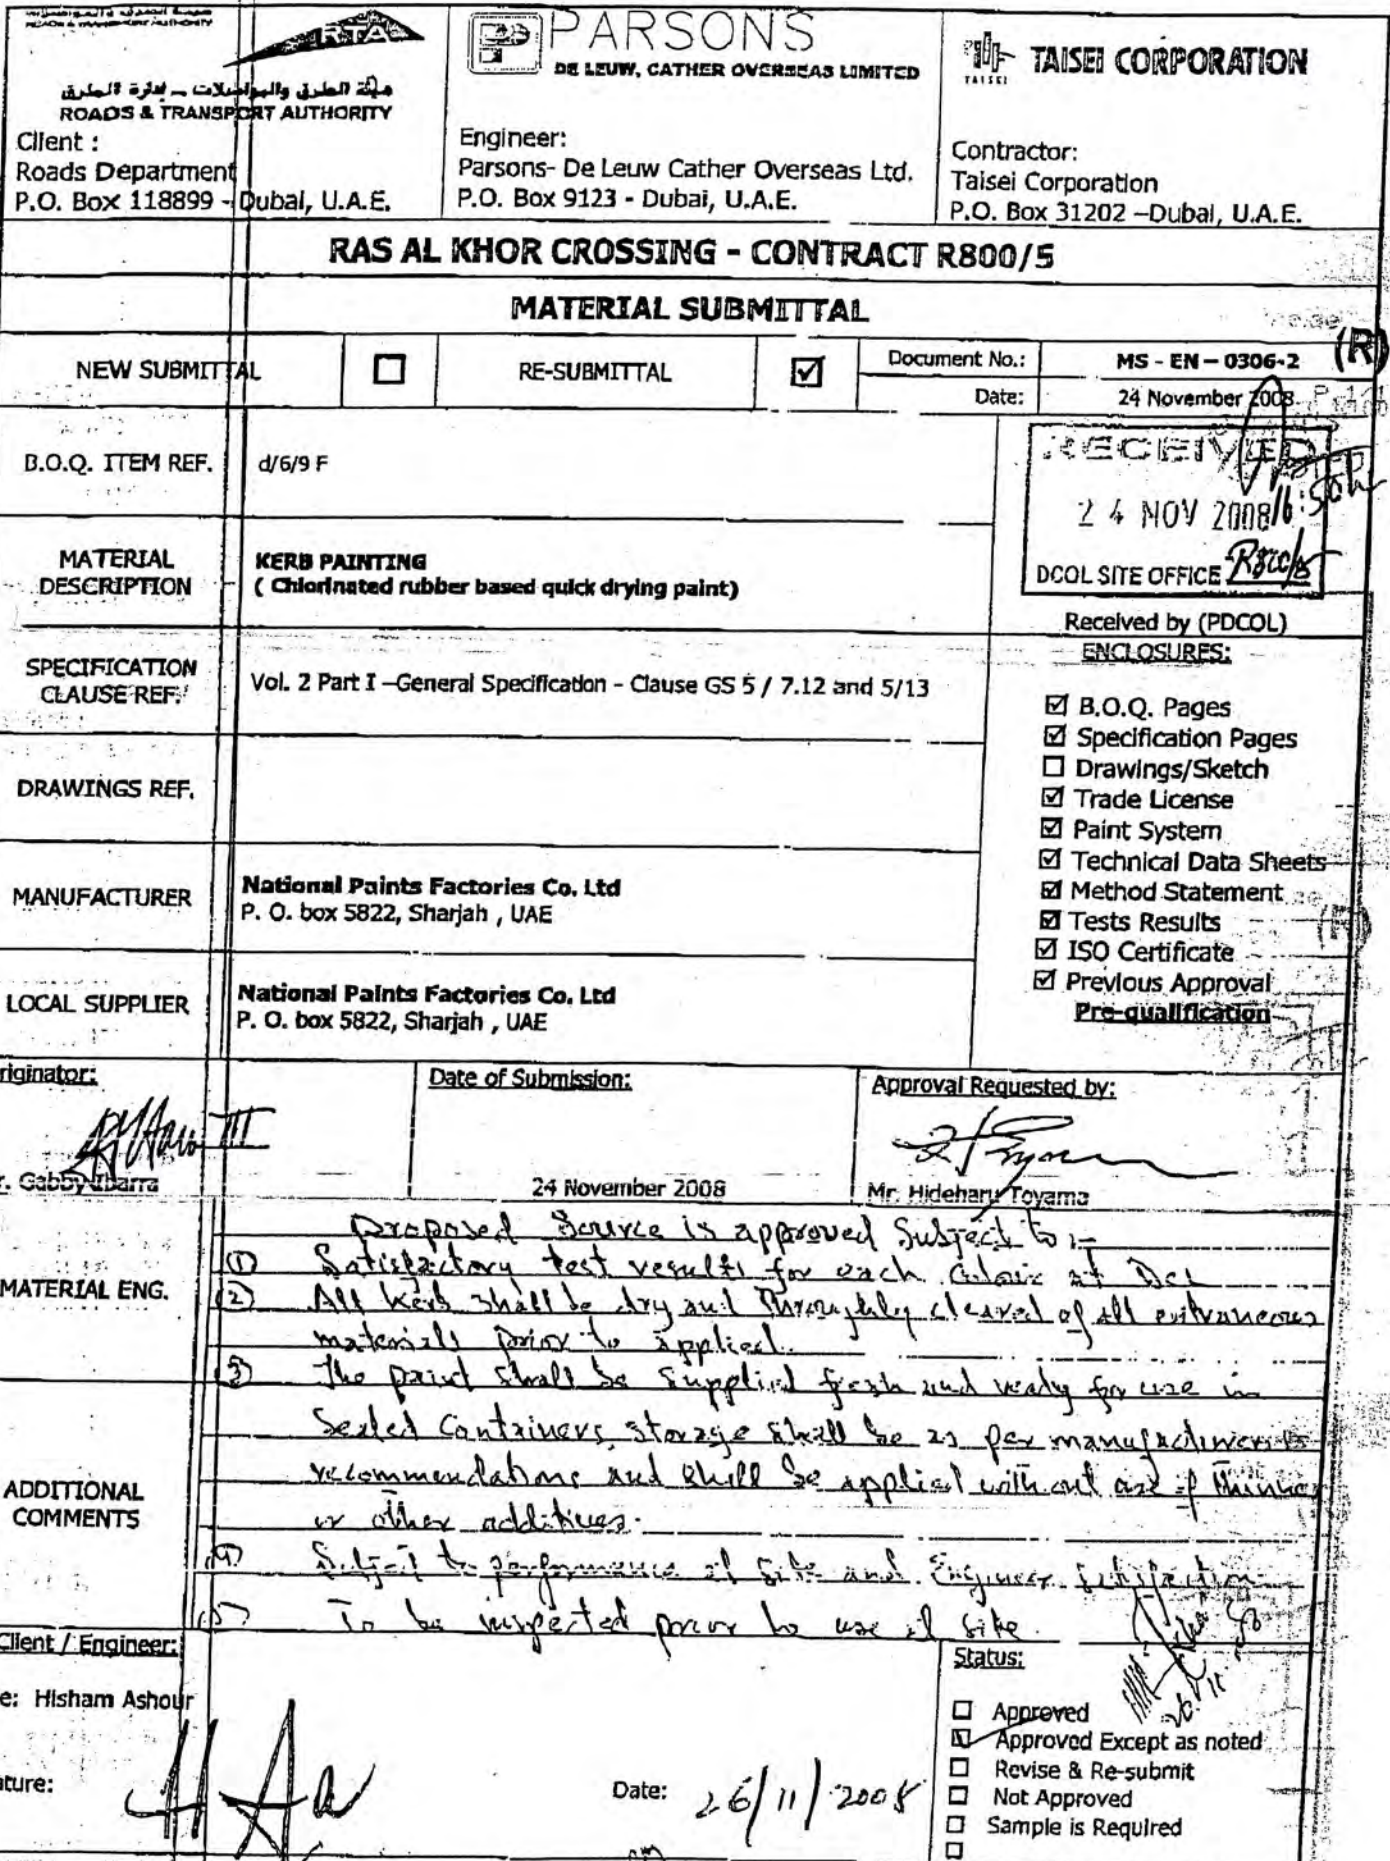 ROADS & TRANSPORT AUTHORITY
RTA
هيئة الطرق والمواصلات - إدارة الطرق
ROADS & TRANSPORT AUTHORITY
Client :
Roads Department
P.O. Box 118899 - Dubai, U.A.E.
PARSONS
DE LEUW, CATHER OVERSEAS LIMITED
Engineer:
Parsons- De Leuw Cather Overseas Ltd.
P.O. Box 9123 - Dubai, U.A.E.
TAISEI
TAISEI CORPORATION
Contractor:
Taisei Corporation
P.O. Box 31202 –Dubai, U.A.E.
RAS AL KHOR CROSSING - CONTRACT R800/5
MATERIAL SUBMITTAL
NEW SUBMITTAL ☐ RE-SUBMITTAL ☑ Document No.: MS - EN – 0306-2 (R)
Date: 24 November 2008
B.O.Q. ITEM REF. d/6/9 F
RECEIVED
24 NOV 2008 16:50h
DCOL SITE OFFICE R800/5
Received by (PDCOL)
MATERIAL DESCRIPTION
KERB PAINTING
( Chlorinated rubber based quick drying paint)
SPECIFICATION CLAUSE REF.
Vol. 2 Part I –General Specification - Clause GS 5 / 7.12 and 5/13
DRAWINGS REF.
MANUFACTURER
National Paints Factories Co. Ltd
P. O. box 5822, Sharjah , UAE
LOCAL SUPPLIER
National Paints Factories Co. Ltd
P. O. box 5822, Sharjah , UAE
ENCLOSURES:
☑ B.O.Q. Pages
☑ Specification Pages
☐ Drawings/Sketch
☑ Trade License
☑ Paint System
☑ Technical Data Sheets
☑ Method Statement
☑ Tests Results
☑ ISO Certificate
☑ Previous Approval
Pre-qualification
riginator:
r. Gabby Ibarra
Date of Submission:
24 November 2008
Approval Requested by:
Mr. Hideharu Toyama
MATERIAL ENG.
Proposed Source is approved Subject to :-
(1) Satisfactory test results for each Colour at DCL
(2) All Kerb shall be dry and thoroughly cleaned of all extraneous
materials prior to applied.
(3) The paint shall be supplied fresh and ready for use in
Sealed Containers, storage shall be as per manufacturer's
recommendations and shall be applied without use of thinner
or other additives.
ADDITIONAL COMMENTS
(4) Subject to performance at site and Engineer satisfaction
(5) To be inspected prior to use at site.
Client / Engineer:
e: Hisham Ashour
ature:
Date: 26/11/2008
Status:
☐ Approved
☑ Approved Except as noted
☐ Revise & Re-submit
☐ Not Approved
☐ Sample is Required
☐